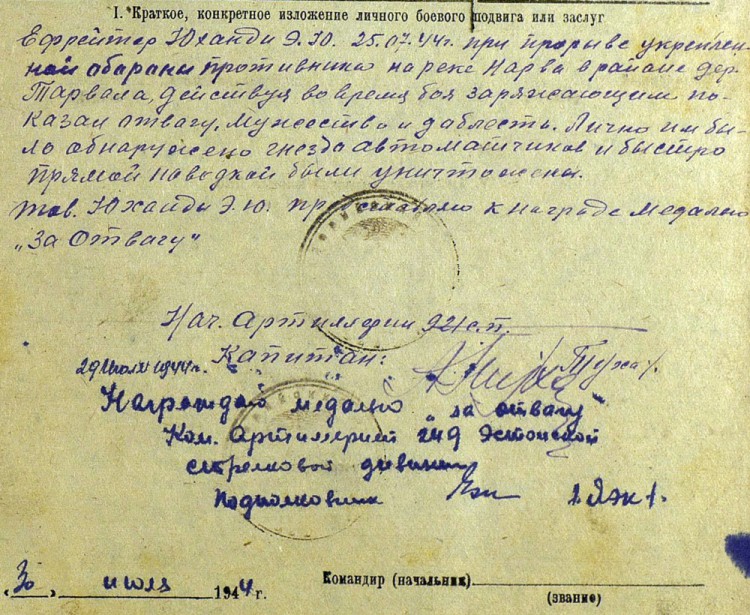 I. Краткое, конкретное изложение личного боевого подвига или заслуг
Ефрейтор Юханди Э.Ю. 25.07.44г. при прорыве укреплен-
ной обараны противника на реке Нарва в районе дер.
Тарвала, действуя во время боя заряжающим по-
казал отвагу, мужество и даблесть. Лично им бы-
ло обнаружено гнезда автоматчиков и быстро
прямой наводкой были уничтожены.
тов. Юханди Э.Ю. представляю к награде медалью
„За Отвагу"
Нач. Артиллерии 921 с.п.
Капитан:
29 июля 1944г.
Награждаю медалью „за отвагу"
Ком. Артиллерией 249 Эстонской
стрелковой дивизии
Подполковник /Яэк/.
„30" июля 1944 г.
Командир (начальник)
(звание)